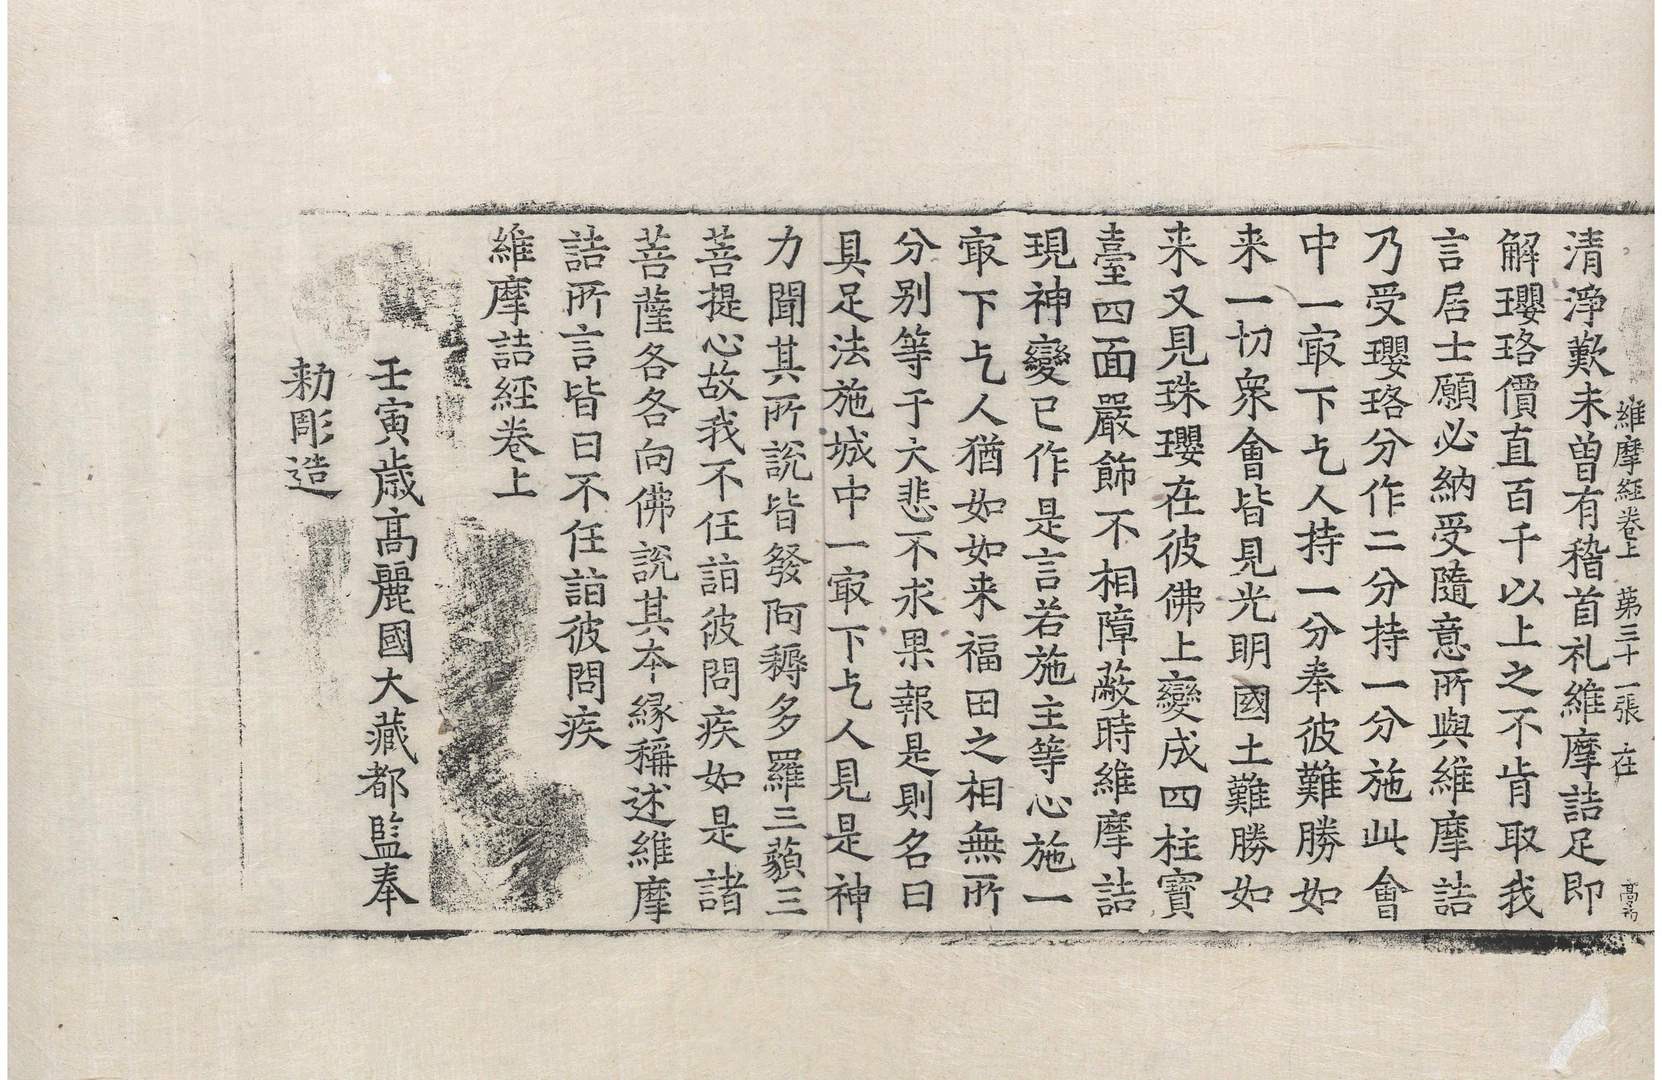 維摩經卷上 第三十一張 在
清淨歎未曽有稽首礼維摩詰足即
解瓔珞價直百千以上之不肯取我
言居士願必納受隨意所與維摩詰
乃受瓔珞分作二分持一分施此會
中一㝡下乞人持一分奉彼難勝如
来一切衆會皆見光明國土難勝如
来又見珠瓔在彼佛上變成四柱寶
臺四面嚴飾不相障蔽時維摩詰
現神變已作是言若施主等心施一
㝡下乞人猶如如来福田之相無所
分别等于大悲不求果報是則名曰
具足法施城中一㝡下乞人見是神
力聞其所說皆發阿耨多羅三藐三
菩提心故我不任詣彼問疾如是諸
菩薩各各向佛說其夲緣稱述維摩
詰所言皆曰不任詣彼問疾
維摩詰經卷上
壬寅歳高麗國大藏都監奉
勑彫造